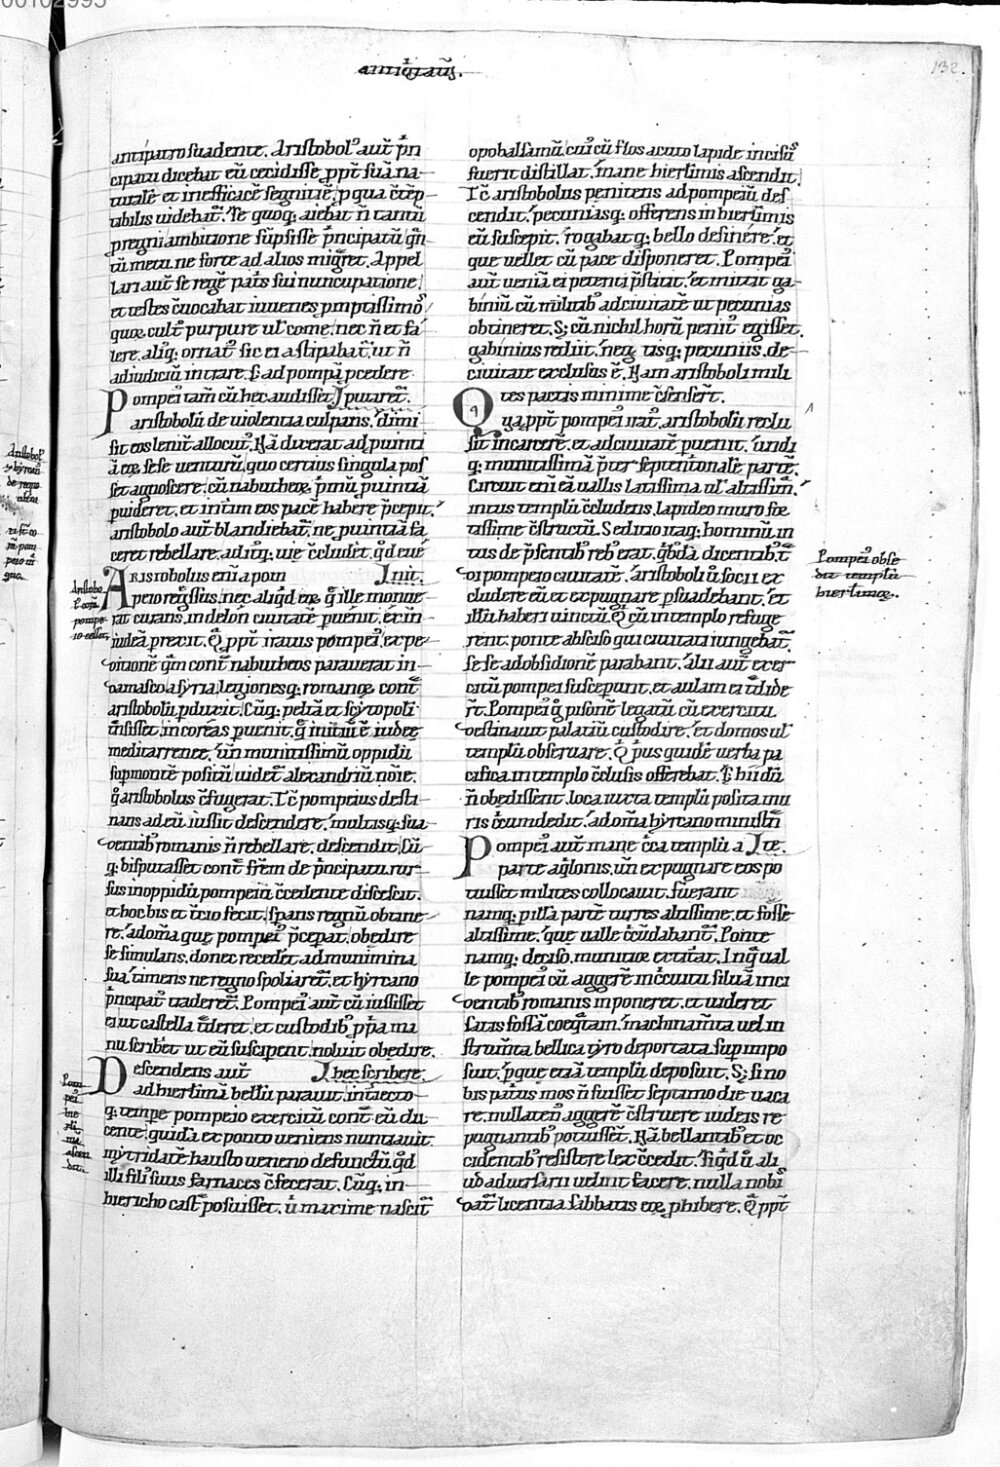 antiqitatū.
132.
antipatro suadente. Aristobol᷒ aut̄ p̄n
cipatu dicebat eū cecidisse ꝓpt̄ suā na-
turalē et inefficacē segnitiē, ꝓ qua ct̄ep-
tibilis uidebat᷑. Se quoq; aiebat n̄ tantū
ꝓ regni ambitione sūpsisse p̄ncipatū, qn̄-
tū metu, ne forte ad alios migr̄et. Appel
lari aut̄ se regē pat̄s sui nuncupatione,
et testes c̄uocabat iuuenes ꝓmptissimos,
quoꝝ cult᷒ purpure ul̓ come, nec n̄ et fa-
lere, aliq; ornat᷒ sic ei astipabat᷑, ut n̄
ad iudiciū intrare, s; ad pompā ꝓcedere
Pompei᷒ tam̄ cū hec audisset, putaret᷑.
aristobolū de uiolentia culpans, dimi-
sit eos lenit̄ allocut᷒. Nā dicebat ad ꝓuinti
ā eoꝝ sese uenturū, quo certius singula pos
set agnoscere, cū nabutheoꝝ p̄mū ꝓuintiā
ꝓuideret, et int̄im eos pacē habere p̄cepit.
aristobolo aut̄ blandiebat᷑, ne ꝓuintiā fa
ceret rebellare, ad itūq; uie c̄cluderet, qd̄ euē
Aristobolus eni̅ a pom nit.
peio regssus, nec aliqd̄ eoꝝ q̄ ille monue-
rat curans, in delon ciuitatē ꝑuenit, ex in-
iudeā ꝓrexit. Q̄ ꝓpt̄ irat᷒ pompei᷒, expe-
ditionē qm̄ cont̄ nabutheos parauerat in
damasco a syria, legionesq; romanoꝝ cont̄
aristobolū ꝑduxit. Cūq; pellā et scytopoli
t̄nsisset, in coreas ꝑuenit, q̄ initiū ē iudee
mediterranee, un̄ munitissimū oppidū
sup monte positū uidet᷑ alexandriū noīe,
q̄ aristobolus c̄fugerat. Ic̄ pompeius desti-
nans ad eū, iussit descendere, multisq; sua-
dentib᷒ romanis n̄ rebellare, descendit. Cū
q; disputasset cont̄ fr̄em de p̄ncipatu, rur
sus in oppidū pompeio c̄cedente discescit,
et hoc bis et t̄cio fecit, spans regnū obtine-
re, ad om̄a que pompei᷒ p̄cepat, obedire
se simulans, donec recedet᷑ ad munimina
sua, timens ne regno spoliaret᷑, et hyrcano
p̄ncipat᷒ traderet᷑. Pompei᷒ aut̄ cū iussisset
ei ut castella t̄deret, et custodib᷒ ꝓpa ma
nu scriberet ut eū suscipent, noluit obedire.
Descendens aut̄ hec scribere.
ad hierlimā bellū parauit, int̄iecto-
q; tempe pompeio exercitū cont̄ eū du-
cente, quidā ex ponto ueniens nuntiauit,
mytridatē hausto ueneno defunctū, qd̄
illi fili᷒ suus farnaces c̄fecerat. Cūq; in-
hiericho cast̄ posuisset, u᷒ maxime nascit᷑
opobalsamū, cui᷒ cū flos acuto lapide incisū
fuerit distillat, mane hierlimis ascendit.
Ic̄ aristobolus penitens ad pompeiū des
cendit, pecuniasq; offerens in hierlimis
eū suscepit, rogabatq; bello desinere, et
que uellet cū pace disponeret. Pompei᷒
aut̄ ueniā ei petenti p̄stitit, et mittit ga-
biniū cū militib᷒ ad ciuitatē ut pecunias
obtineret. S; cū nichil horū penit᷒ egisset,
gabinius rediit, neq; usq; pecuniis, de-
ciuitate exclusus ē. Nam aristoboli mili
tes pactis minime c̄senser̄t.
Quā ꝓpt̄ pompei᷒ irat᷒, aristobolū reclu
sit in carcerē, et ad ciuitatē ꝑuenit, undi
q; munitissimā p̄ter septentionalē partē.
Circuit eni̅ eā uallis latissima ul̓ altissim̄.
intus templū c̄cludens, lapideo muro for
tissime c̄structū. Seditio itaq; hominū in
tus de p̄sentib᷒ reb᷒ erat, q̄bdā dicentib᷒ t̄
di pompeio ciuitatē, aristoboli ū socii ex
cludere eū et expugnare ꝑsuadebant, et
illū haberi uinctū. Q̄ cū in templo refuge
rent, ponte absciso qui ciuitati iungebat᷑,
sese ad obsidionē parabant, alii aut̄ exer
citū pompei susceperunt, et aulam ei t̄dide
r̄t. Pompei᷒ q̄ pisonē legatū cū exercitu
destinauit palatiū custodire, et domos ul̓
templū obseruare. Q̄ p᷒us quidē uerba pa
cifica in templo c̄clusis offerebat. S; hii dū
n̄ obedissent, loca iuxta templū posita mu
ris c̄cundedit, ad om̄a hyrcano ministn̄
Pompei᷒ aut̄ mane c̄ca templū a te.
parte aq̄lonis, un̄ expugnare eos po
tuisset milites collocauit. fuerant
namq; p illā partē turres altissime, et fosse
altissime, que ualle c̄cūdabant᷑. Ponte
namq; deciso, munitior extitat. In q̄ ual
le pompei᷒ cū aggerē in c̄cuitu siluā inci
dentib᷒ romanis imponeret, et uideret
satis fossā coeq̄tam, machinam̄ta uel in
strum̄ta bellica tyro deportata sup impo
suit, p que etiā templū deposuit. S; si no
bis pat᷒us mos n̄ fuisset septimo die uaca
re, nullaten᷒ aggerē c̄struere iudeis re
pugnantib᷒ potuisset. Nā bellantib᷒ et oc
cidentib᷒ resistere lex c̄cedit. Siqd̄ ū ali
ud aduersarii uelint facere, nulla nobis
dat᷑ licentia sabbatis eoꝝ ꝓhibere. Q̄ ꝓpt̄
Pompei᷒ obse
dit templū
hierlimoꝝ.